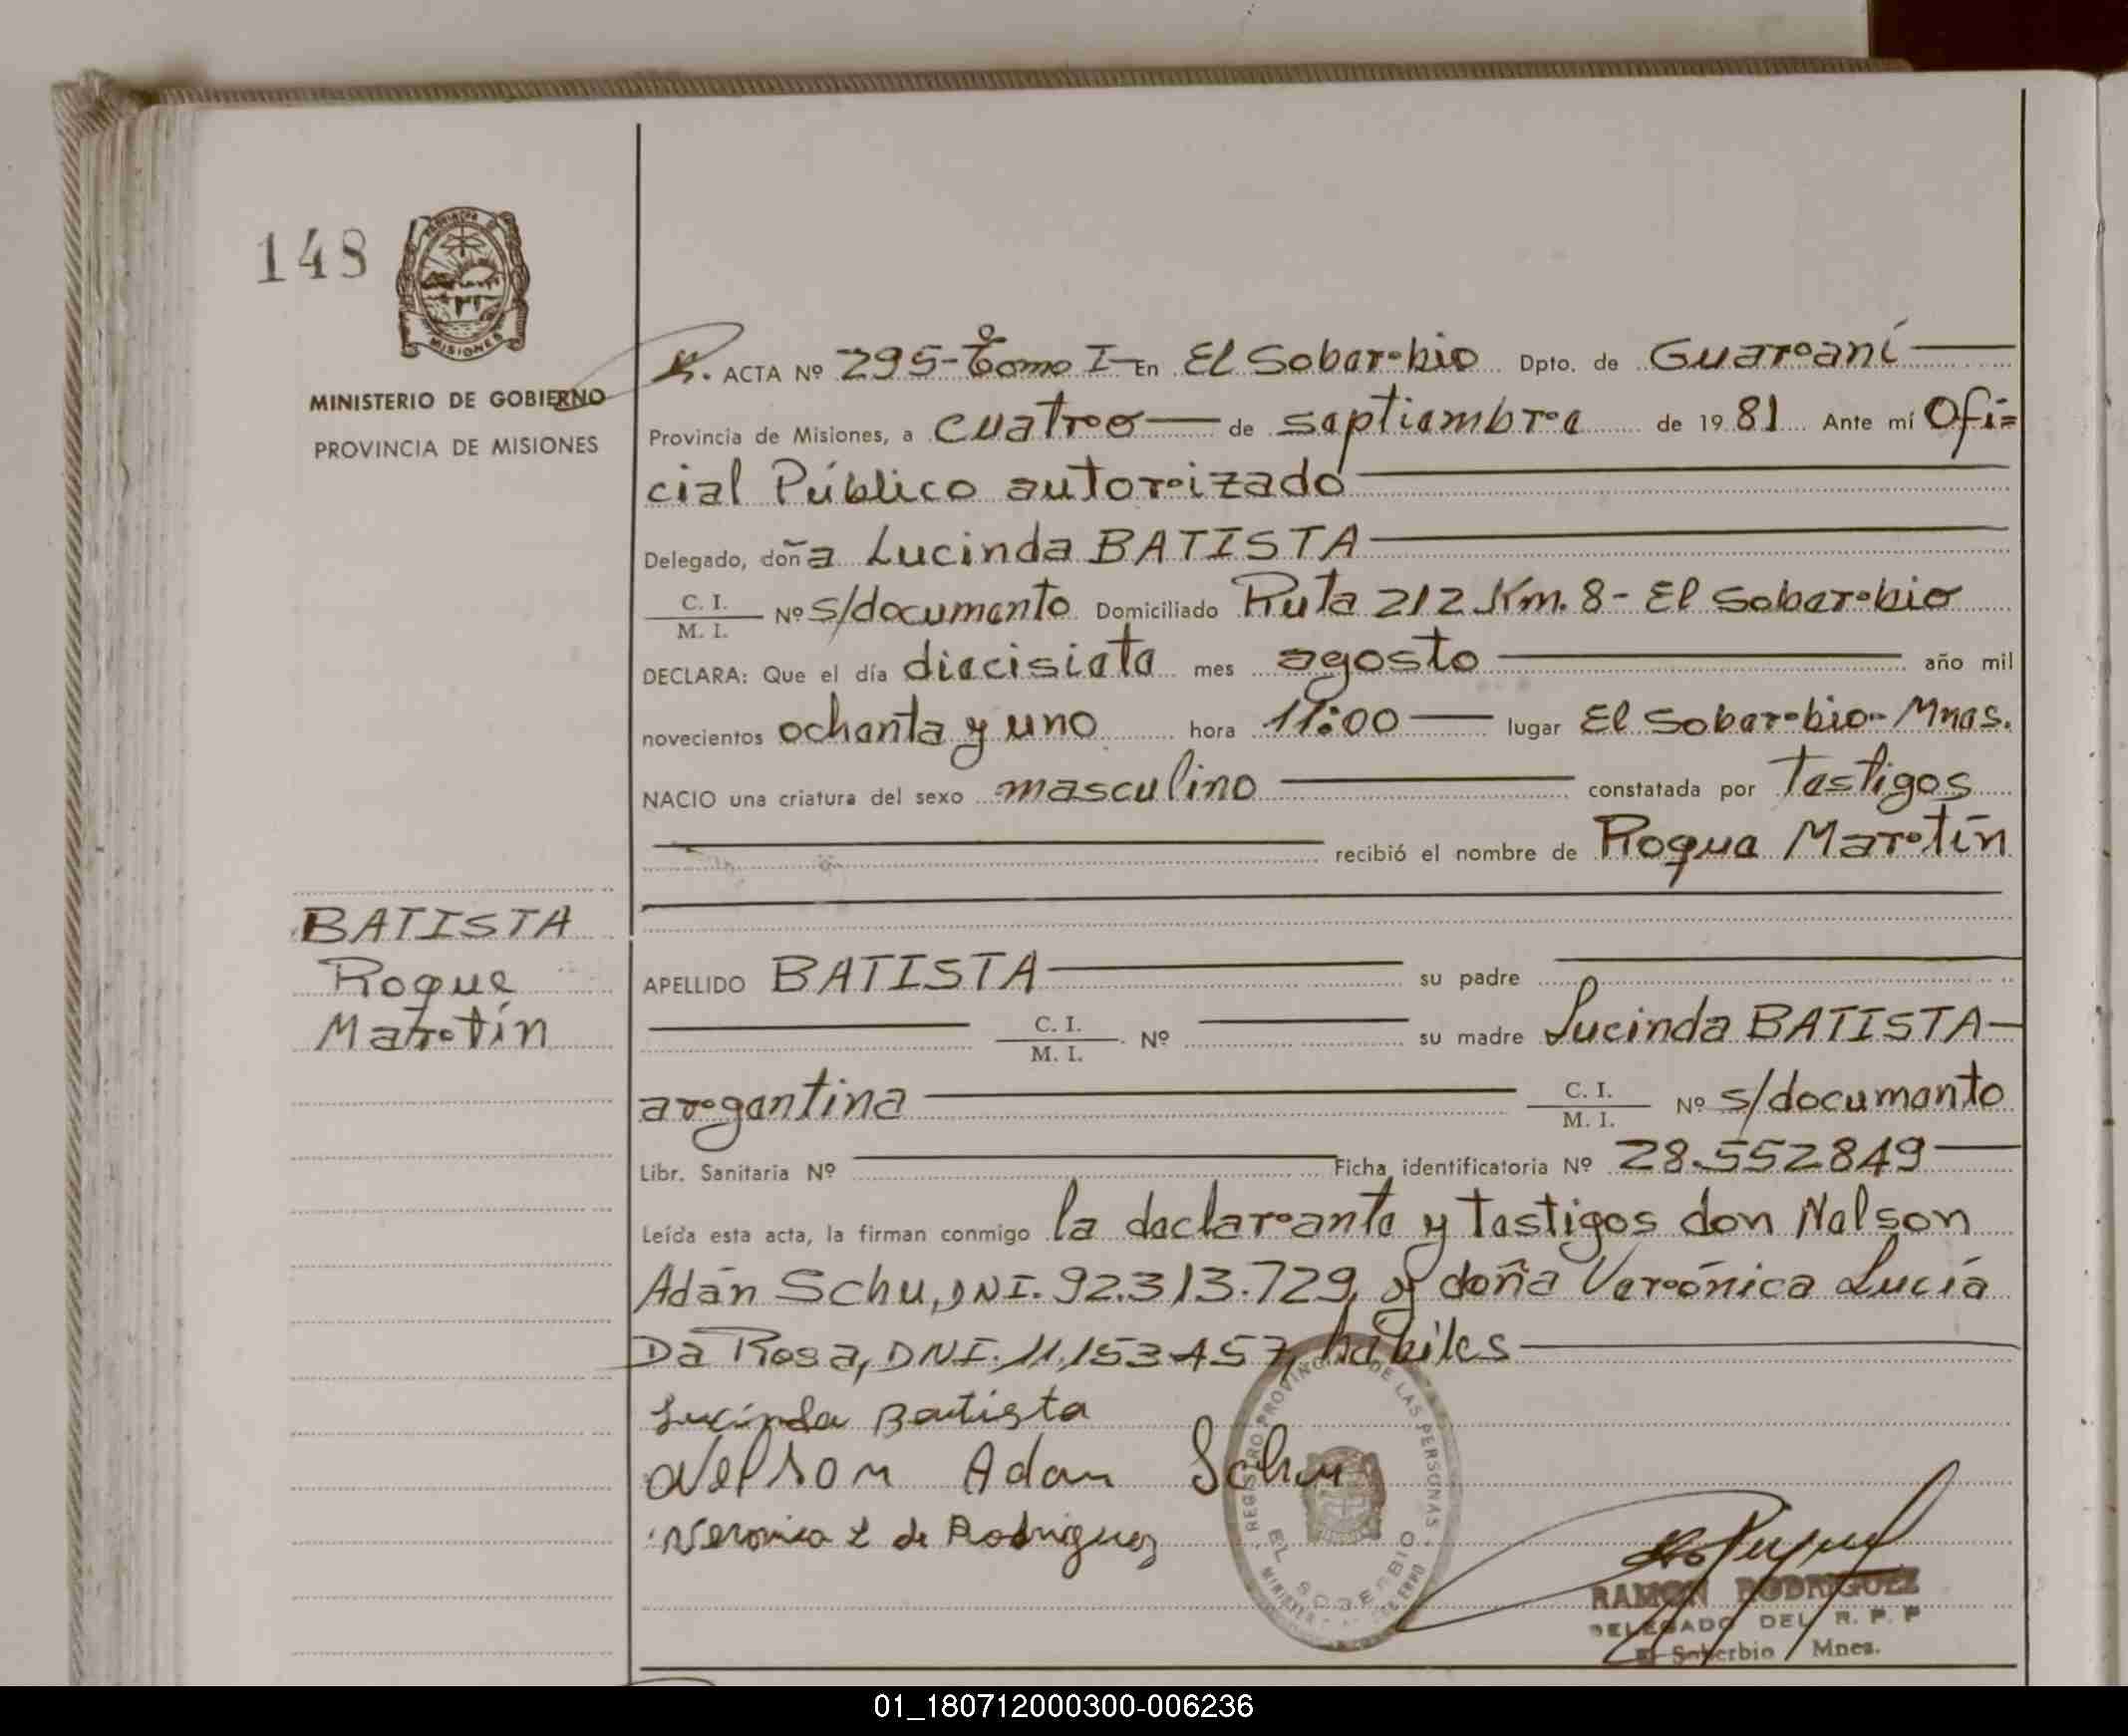 148
MINISTERIO DE GOBIERNO
PROVINCIA DE MISIONES
MISIONES
ACTA Nº 295- Tomo Iº En El Soberbio Dpto. de Guaraní
Provincia de Misiones, a cuatro de septiembre de 1981 Ante mí Ofi=
cial Público autorizado
Delegado, doña Lucinda BATISTA
C. I.
M. I. Nº s/documento Domiciliado Ruta 212 Km. 8- El Soberbio
DECLARA: Que el día diecisiete mes agosto año mil
novecientos ochenta y uno hora 11:00 lugar El Soberbio- Mnes.
NACIO una criatura del sexo masculino constatada por testigos
recibió el nombre de Roque Martín
BATISTA
Roque
Martín
APELLIDO BATISTA su padre
C. I.
M. I. Nº su madre Lucinda BATISTA-
argentina C. I.
M. I. Nº s/documento
Libr. Sanitaria Nº Ficha identificatoria Nº 28.552849
Leída esta acta, la firman conmigo la declarante y testigos don Nelson
Adán Schu, DNI. 92.313.729, y doña Verónica Lucía
Da Rosa, DNI. 11.153457, hábiles
Lucinda Batista
Nelson Adan Schu
Veronica L de Rodriguez
REGISTRO PROVINCIAL DE LAS PERSONAS
EL SOBERBIO
RAMON RODRIGUEZ
DELEGADO DEL R. P. P
El Soberbio Mnes.
01_180712000300-006236